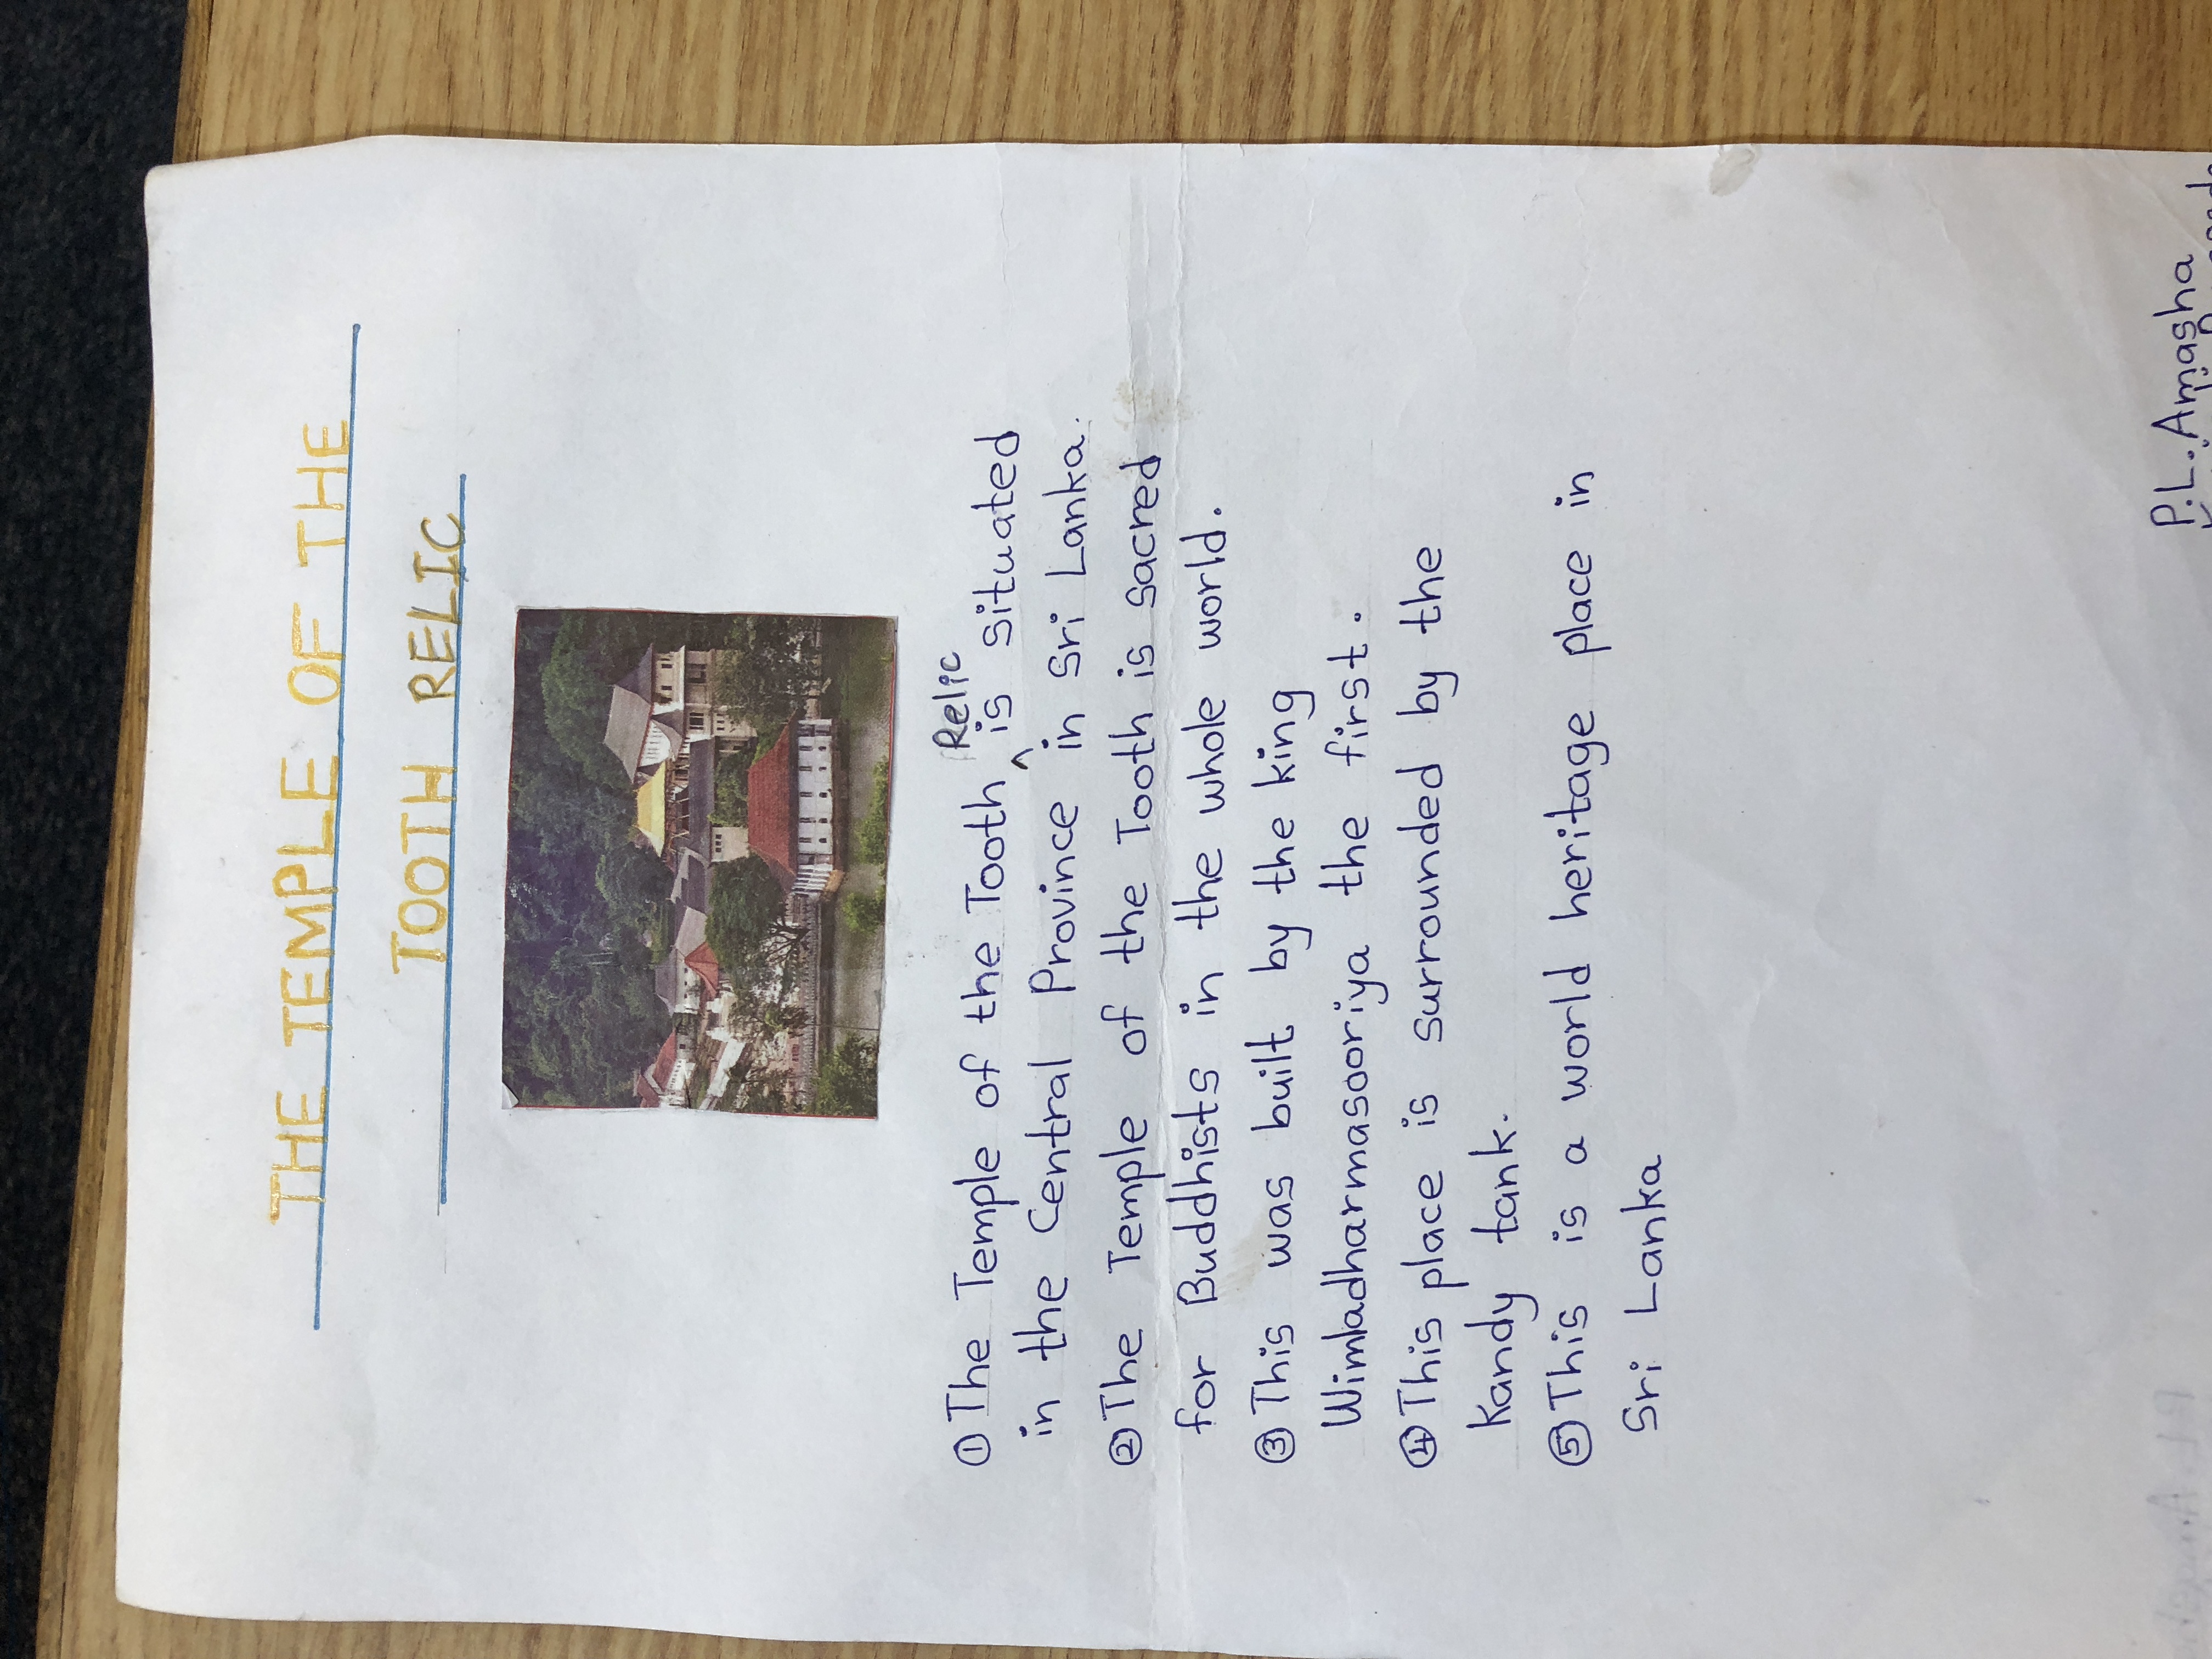 THE TEMPLE OF THE
TOOTH RELIC
① The Temple of the Tooth Relic is situated
in the Central Province in Sri Lanka.
② The Temple of the Tooth is sacred
for Buddhists in the whole world.
③ This was built by the king
Wimladharmasooriya the first.
④ This place is surrounded by the
Kandy tank.
⑤ This is a world heritage place in
Sri Lanka
P.L. Amasha